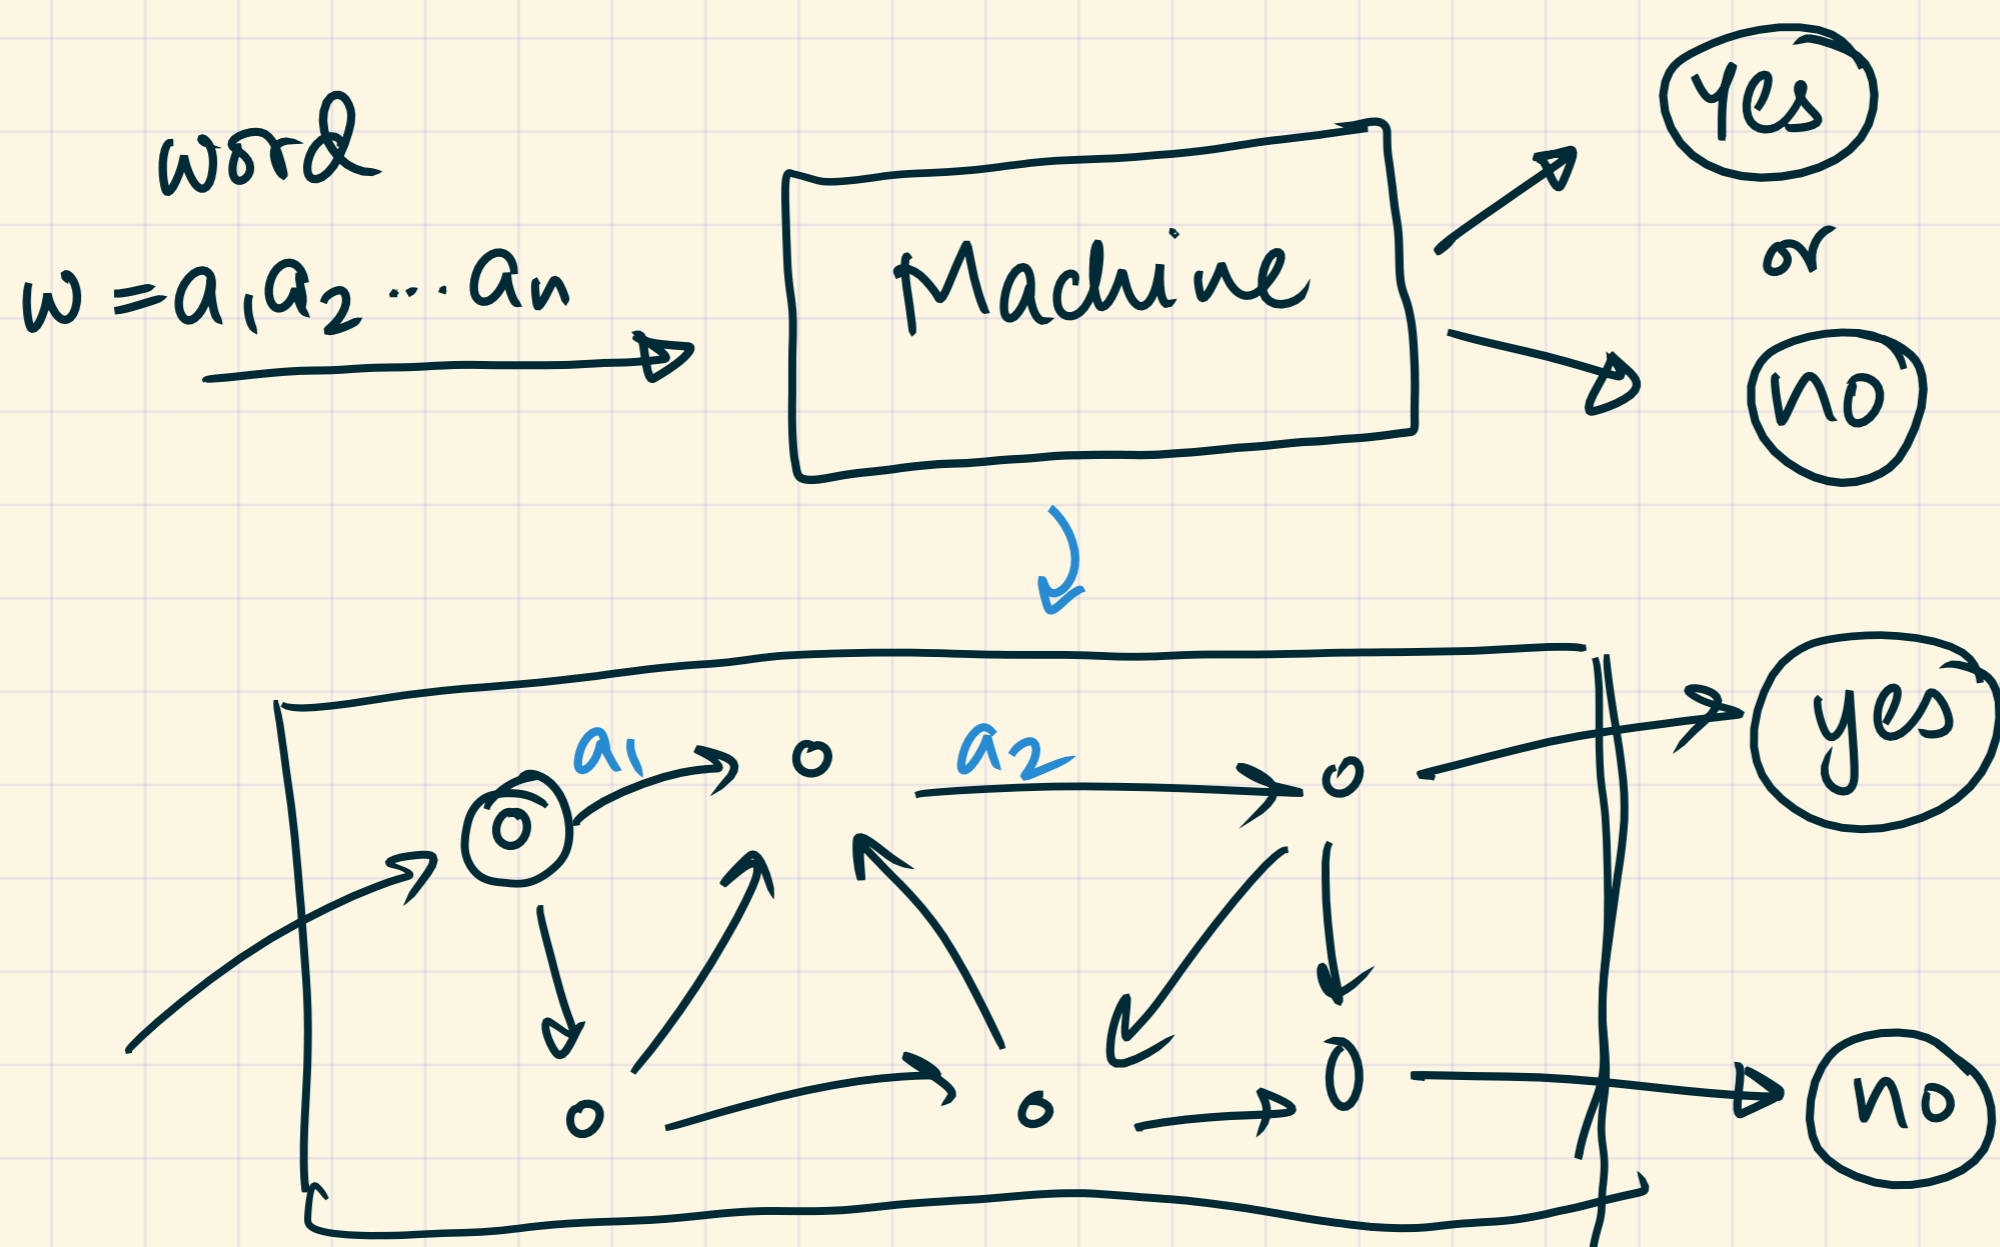 word
w = a₁a₂ ... aₙ
Machine
Yes
or
no
a₁
a₂
yes
no